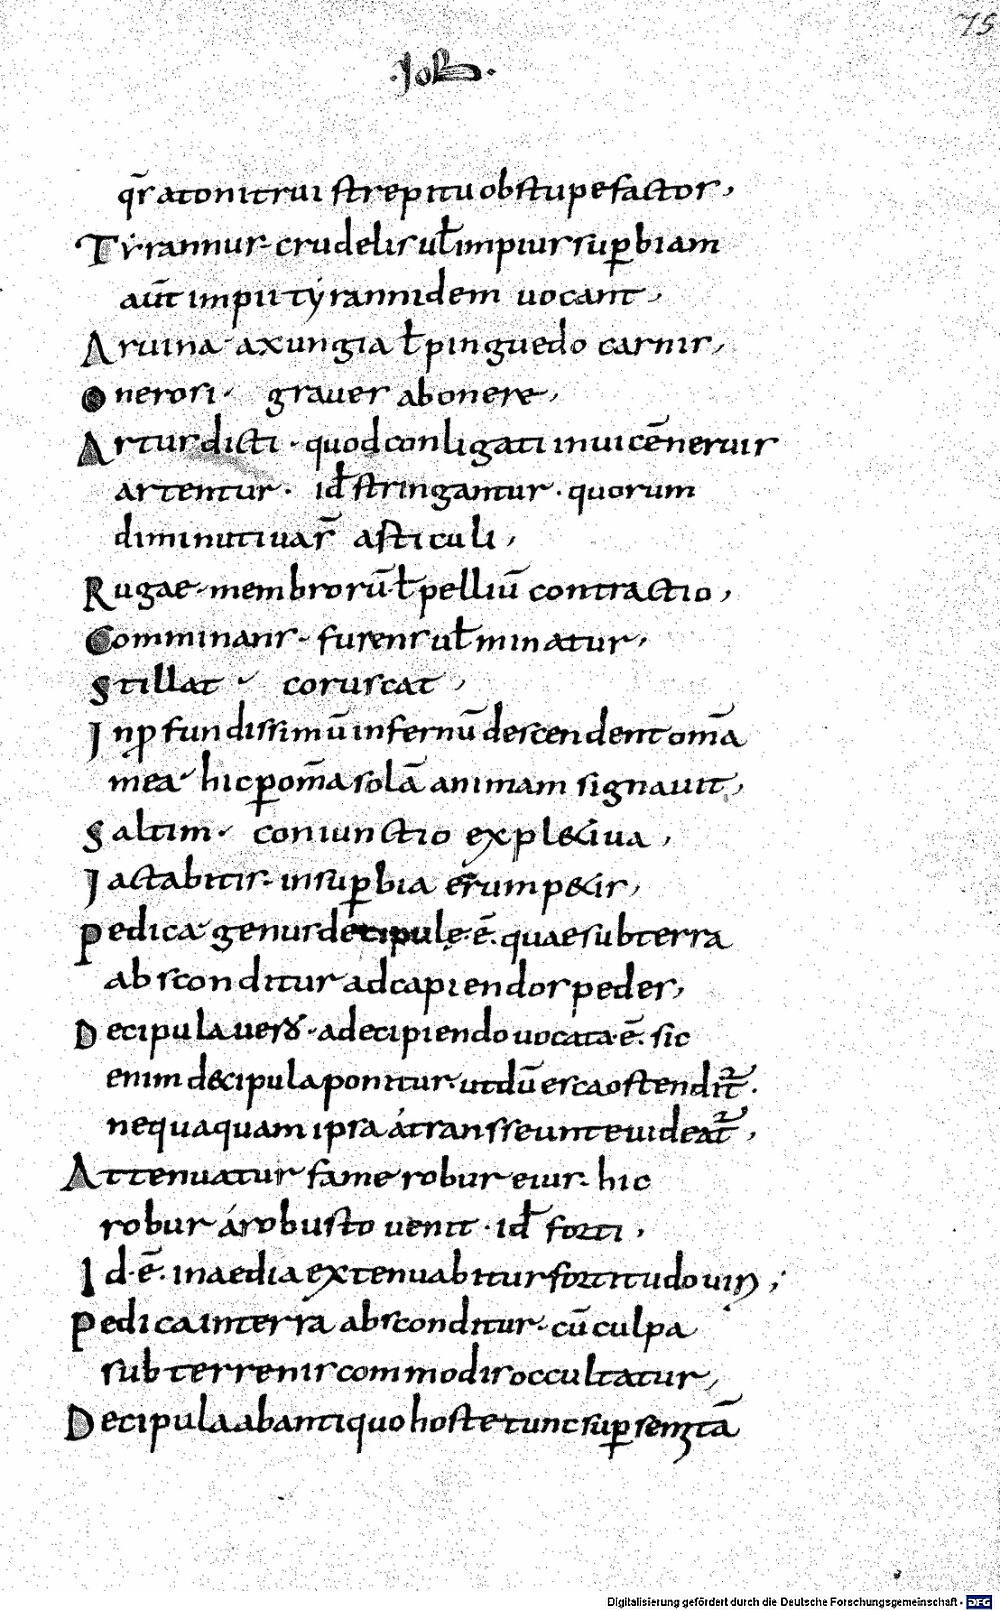 75
·IoB·
qr̄ a tonitrui strepitu obstupefactos,
Tẏrannus· crudelis uł impius superbiam
aūt impii tẏrannidem uocant,
Aruina· axungia ł pinguedo carnis,
onerosi· graues ab onere,
Artus dicti· quod conligati inuicē neruis
artentur· id̄ stringantur· quorum
diminutiua s̄ asticuli,
Rugae· membrorū· ł pelliū contractio,
Comminans· furens uł minatur,
Stillat· coruscat,
In ꝓfundissimū infernū descendent om̄a
mea· hic ꝑ om̄a solā animam signauit,
Saltim· coniunctio expl&iua,
Iactabitis· in suꝑbia erūmp&is,
Pedica genus decipulę· ē· quae sub terra
absconditur ad capiendos pedes,
Decipula uero· a decipiendo uocata· ē· sic
enim decipula ponitur· ut dū esca ostendit᷑·
nequaquam ipsa á transseunte uideat᷑,
Attenuatur fame robur eius· hic
robur á robusto uenit· id̄ forti,
Id· ē· inaedia extenuabitur fortitudo uiri;
Pedica in terra absconditur· cū culpa
sub terrenis commodis occultatur,
Decipula ab antiquo hoste tunc suꝑ semitā
Digitalisierung gefördert durch die Deutsche Forschungsgemeinschaft - DFG